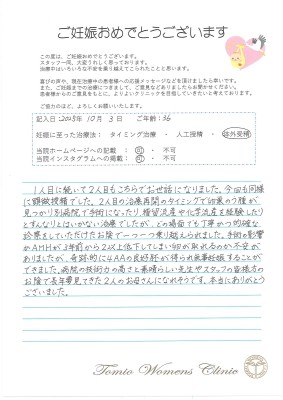 ご妊娠おめでとうございます
この度は、ご妊娠おめでとうございます。
スタッフ一同、大変うれしく思っております。
治療中はいろいろな不安を乗り越えてこられたことと思います。
喜びの声や、現在治療中の患者様への応援メッセージなどを頂けましたら幸いです。
また、妊娠までの治療につきまして、ご意見などありましたらお聞かせください。
患者様からのご意見をもとに、よりよいクリニックを目指していきたいと考えております。
ご協力のほど、よろしくお願いいたします。
記入日 2025年 10月 3日 ご年齢:36
妊娠に至った治療法: タイミング治療 ・ 人工授精 ・ 体外受精
当院ホームページへの記載 : 可 ・ 不可
当院インスタグラムへの掲載 : 可 ・ 不可
1人目に続いて2人目もこちらでお世話になりました。今回も同様
に顕微授精でした。2人目の治療再開のタイミングで卵巣のう腫が
見つかり別病院で手術になったり、稽留流産や化学流産を経験したり
とすんなりとはいかない治療でしたが、どの場面でも丁寧かつ的確な
診察をしていただけたお陰で一つ一つ乗り越えられました。手術の影響
かAMHが3年前から2以上低下してしまい卵が取れるのか不安が
ありましたが、奇跡的に4AAの良好胚が得られ無事妊娠することが
できました。病院の技術力の高さと素晴らしい先生やスタッフの皆様方の
お陰で長年夢見てきた2人のお母さんになれそうです。本当にありがとう
ございました。
Tomio Womens Clinic